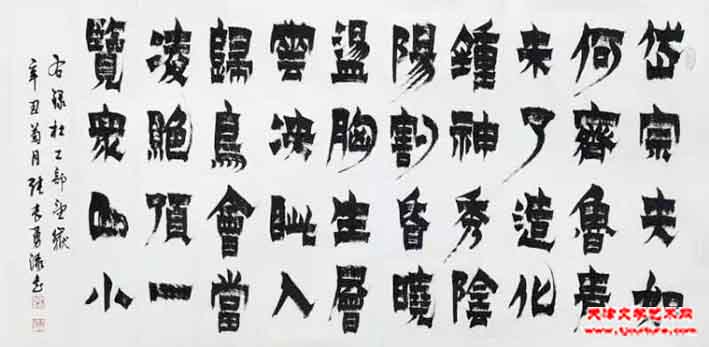 岱宗夫如
何齊魯青
未了造化
鍾神秀陰
陽割昏曉
盪胸生層
雲決眦入
歸鳥會當
凌絕頂一
覽衆山小
右録杜工部望嶽
辛丑菊月
天津文学艺术网
www.tjculture.com